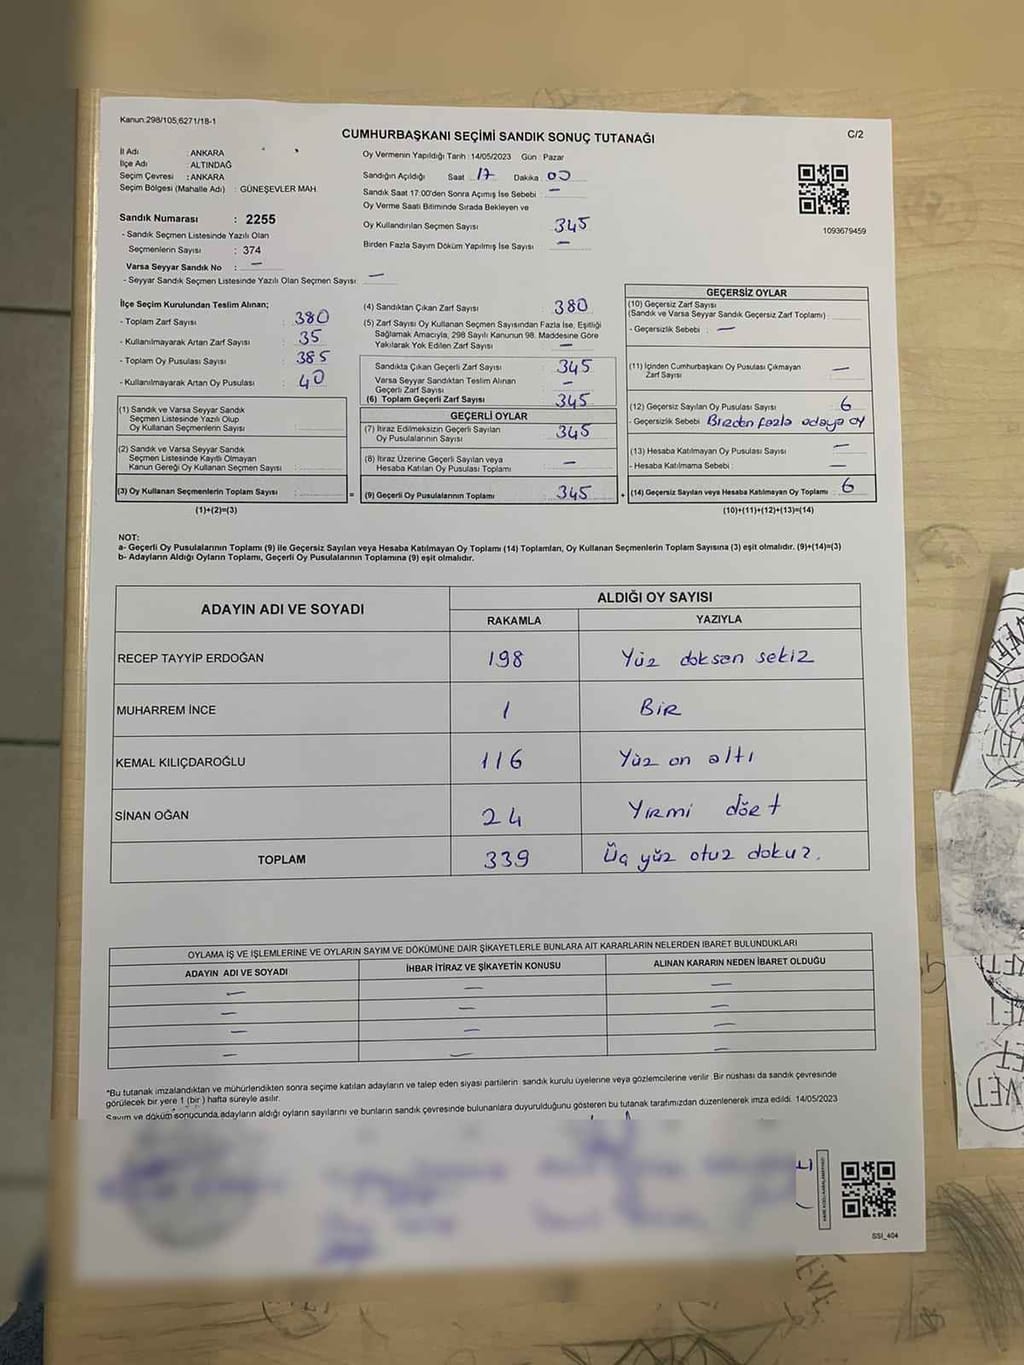 Kanun.298/105,6271/18-1
CUMHURBAŞKANI SEÇİMİ SANDIK SONUÇ TUTANAĞI
C/2
İl Adı : ANKARA
İlçe Adı : ALTINDAĞ
Seçim Çevresi : ANKARA
Seçim Bölgesi (Mahalle Adı) : GÜNEŞEVLER MAH.
Sandık Numarası : 2255
- Sandık Seçmen Listesinde Yazılı Olan
Seçmenlerin Sayısı : 374
Varsa Seyyar Sandık No : —
- Seyyar Sandık Seçmen Listesinde Yazılı Olan Seçmen Sayısı —
Oy Vermenin Yapıldığı Tarih : 14/05/2023 Gün : Pazar
Sandığın Açıldığı Saat 17 Dakika 00
Sandık Saat 17:00'den Sonra Açılmış İse Sebebi : —
Oy Verme Saati Bitiminde Sırada Bekleyen ve
Oy Kullandırılan Seçmen Sayısı 345
Birden Fazla Sayım Döküm Yapılmış İse Sayısı —
1093679459
İlçe Seçim Kurulundan Teslim Alınan;
- Toplam Zarf Sayısı : 380
- Kullanılmayarak Artan Zarf Sayısı : 35
- Toplam Oy Pusulası Sayısı : 385
- Kullanılmayarak Artan Oy Pusulası : 40
(1) Sandık ve Varsa Seyyar Sandık
Seçmen Listesinde Yazılı Olup
Oy Kullanan Seçmenlerin Sayısı :
(2) Sandık ve Varsa Seyyar Sandık
Seçmen Listesinde Kayıtlı Olmayan
Kanun Gereği Oy Kullanan Seçmen Sayısı :
(3) Oy Kullanan Seçmenlerin Toplam Sayısı :
(1)+(2)=(3)
(4) Sandıktan Çıkan Zarf Sayısı : 380
(5) Zarf Sayısı Oy Kullanan Seçmen Sayısından Fazla İse, Eşitliği
Sağlamak Amacıyla, 298 Sayılı Kanunun 98. Maddesine Göre
Yakılarak Yok Edilen Zarf Sayısı —
Sandıkta Çıkan Geçerli Zarf Sayısı 345
Varsa Seyyar Sandıktan Teslim Alınan
Geçerli Zarf Sayısı —
(6) Toplam Geçerli Zarf Sayısı 345
GEÇERLİ OYLAR
(7) İtiraz Edilmeksizin Geçerli Sayılan
Oy Pusulalarının Sayısı 345
(8) İtiraz Üzerine Geçerli Sayılan veya
Hesaba Katılan Oy Pusulası Toplamı —
= (9) Geçerli Oy Pusulalarının Toplamı 345
GEÇERSİZ OYLAR
(10) Geçersiz Zarf Sayısı
(Sandık ve Varsa Seyyar Sandık Geçersiz Zarf Toplamı) :
- Geçersizlik Sebebi : —
(11) İçinden Cumhurbaşkanı Oy Pusulası Çıkmayan
Zarf Sayısı —
(12) Geçersiz Sayılan Oy Pusulası Sayısı 6
- Geçersizlik Sebebi Birden fazla adaya oy
(13) Hesaba Katılmayan Oy Pusulası Sayısı —
- Hesaba Katılmama Sebebi : —
+ (14) Geçersiz Sayılan veya Hesaba Katılmayan Oy Toplamı 6
(10)+(11)+(12)+(13)=(14)
NOT:
a- Geçerli Oy Pusulalarının Toplamı (9) ile Geçersiz Sayılan veya Hesaba Katılmayan Oy Toplamı (14) Toplamları, Oy Kullanan Seçmenlerin Toplam Sayısına (3) eşit olmalıdır. (9)+(14)=(3)
b- Adayların Aldığı Oyların Toplamı, Geçerli Oy Pusulalarının Toplamına (9) eşit olmalıdır.
ADAYIN ADI VE SOYADI
ALDIĞI OY SAYISI
RAKAMLA YAZIYLA
RECEP TAYYİP ERDOĞAN 198 Yüz doksan sekiz
MUHARREM İNCE 1 Bir
KEMAL KILIÇDAROĞLU 116 Yüz on altı
SİNAN OĞAN 24 Yirmi dört
TOPLAM 339 Üç yüz otuz dokuz.
OYLAMA İŞ VE İŞLEMLERİNE VE OYLARIN SAYIM VE DÖKÜMÜNE DAİR ŞİKAYETLERLE BUNLARA AİT KARARLARIN NELERDEN İBARET BULUNDUKLARI
ADAYIN ADI VE SOYADI İHBAR İTİRAZ VE ŞİKAYETİN KONUSU ALINAN KARARIN NEDEN İBARET OLDUĞU
— — —
— — —
— — —
— — —
*Bu tutanak imzalandıktan ve mühürlendikten sonra seçime katılan adayların ve talep eden siyasi partilerin sandık kurulu üyelerine veya gözlemcilerine verilir. Bir nüshası da sandık çevresinde
görülecek bir yere 1 (bir ) hafta süreyle asılır.
Sayım ve döküm sonucunda adayların aldığı oyların sayılarını ve bunların sandık çevresinde bulunanlara duyurulduğunu gösteren bu tutanak tarafımızdan düzenlenerek imza edildi. 14/05/2023
SSI_404
EVET